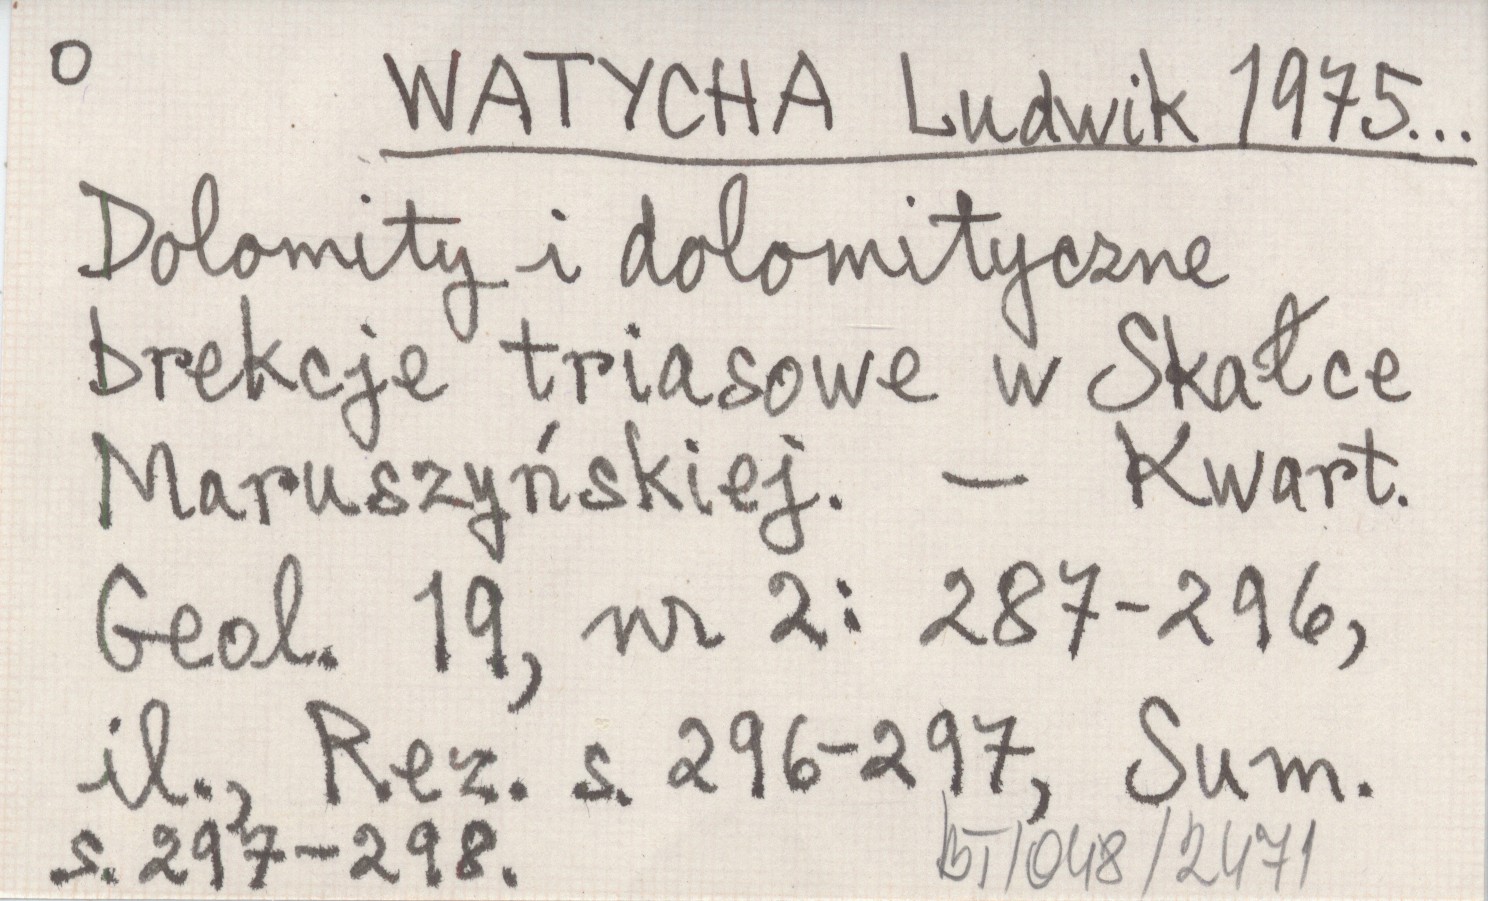 O WATYCHA Ludwik 1975...
Dolomity i dolomityczne
brekcje triasowe w Skałce
Maruszyńskiej. — Kwart.
Geol. 19, nr 2: 287-296,
il., Rez. s. 296-297, Sum.
s. 297-298.
BT/048/2471